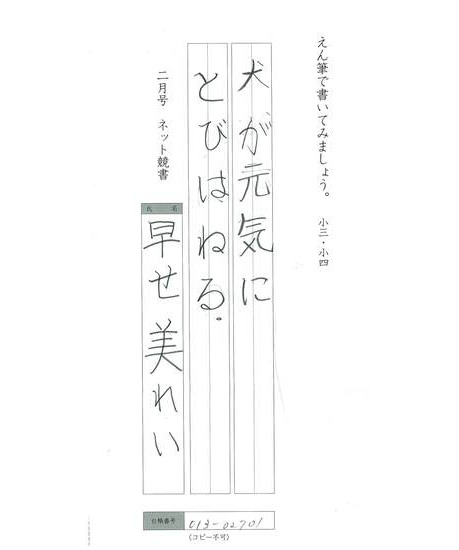 えん筆で書いてみましょう。 小三・小四
犬が元気に
とびはねる。
二月号 ネット競書
氏 名
早せ美れい
会員番号 013-02701
(コピー不可)